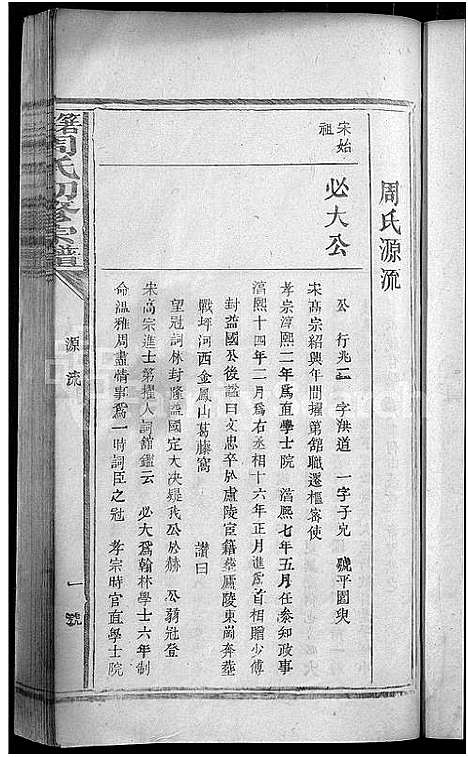 周氏源流
宋始祖
必大公
公 行兆三 字洪道 一字子充 號平園叟
宋高宗紹興年間擢第舘職遷樞密使
孝宗淳熙二年為直學士院 淳熙七年五月任叅知政事
淳熙十四年二月為右丞相十六年正月進為首相贈少傅
封益國公後謚曰文忠卒於盧陵宦籍塟廬陵東崗奔塟
戰坪河西金鳳山葛藤窩 讚曰
望冠詞林封隆益國定大决疑我公於赫 公翦冠登
宋高宗進士第擢入詞舘鑑云 必大為翰林學士六年制
命溫雅周盡情事為一時詞臣之冠 孝宗時官直學士院
周氏初修宗譜
源流
一
號